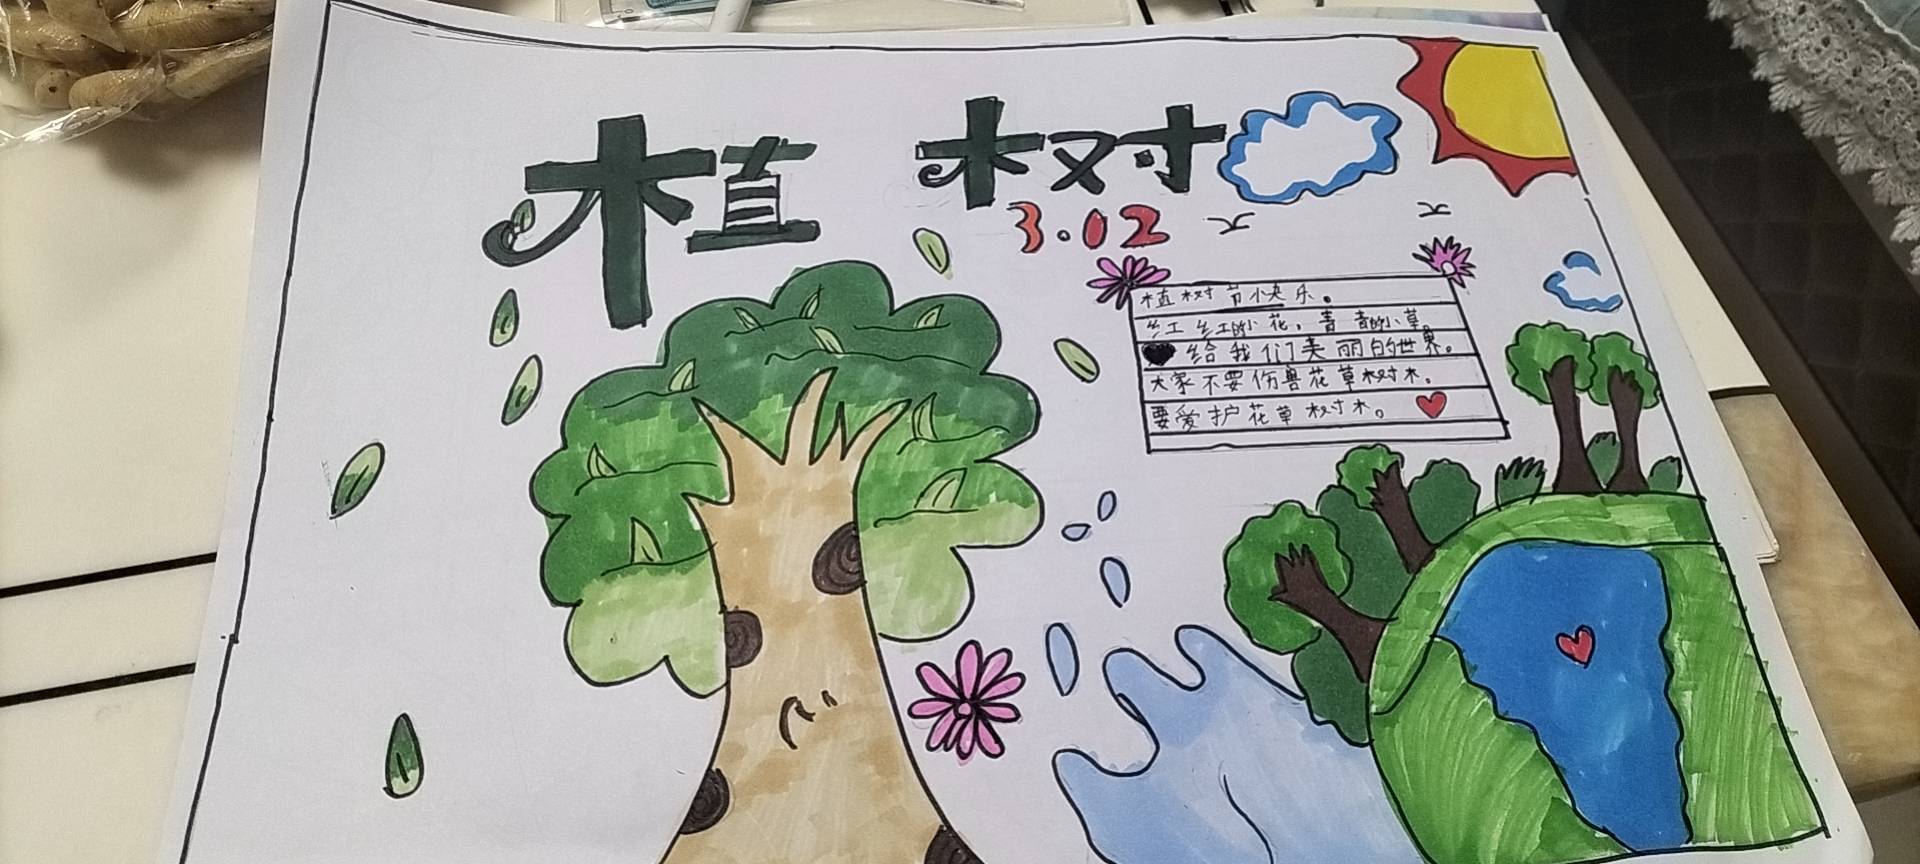 植 树
3.02
植树节小快乐。
红红的小花，青青的小草。
给我们美丽的世界。
大家不要伤兽花草树木。
要爱护花草树木。